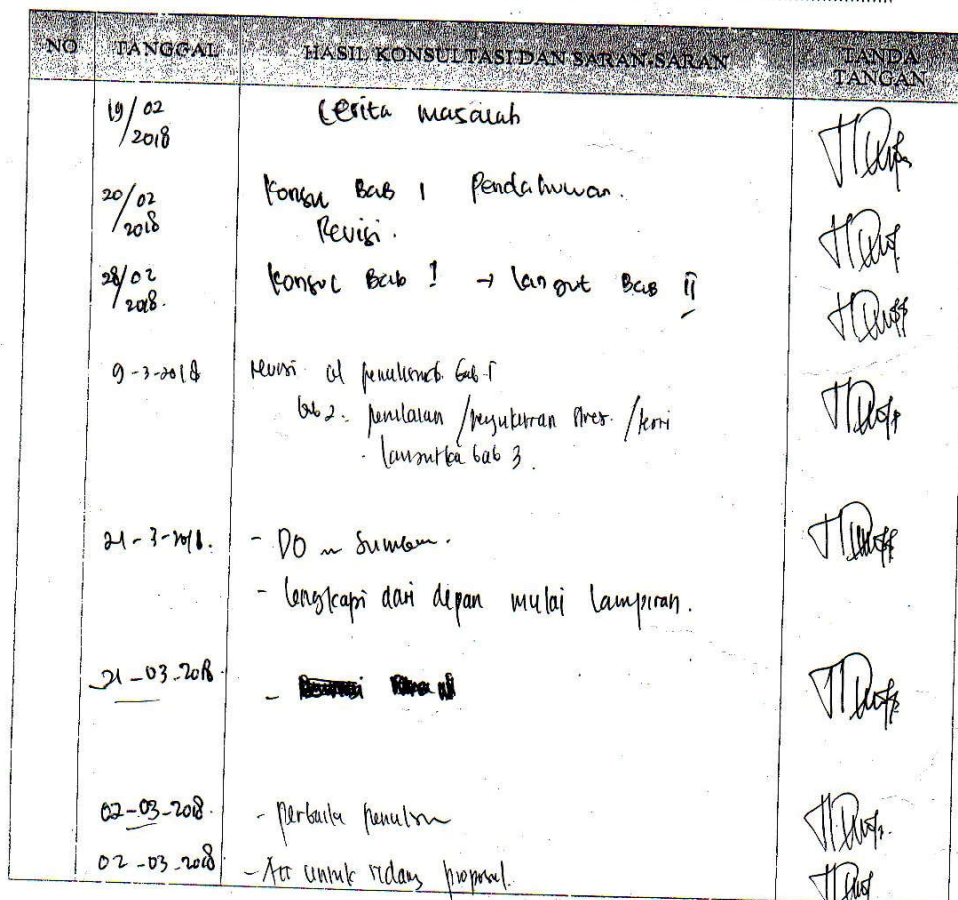 NO TANGGAL HASIL KONSULTASI DAN SARAN-SARAN TANDA TANGAN
19/02/2018 Cerita masalah
20/02/2018 Konsul Bab 1 Pendahuluan.
Revisi.
28/02/2018. Konsul Bab I → lanjut Bab II
9-3-2018 revisi bab 1
bab 2. penilaian / pengukuran stres. / teori
- lanjutka bab 3.
21-3-2018. - DO
- lengkapi dari depan mulai lampiran.
21-03-2018. -
02-03-2018. - perbaiki
02-03-2018 - Acc untuk sidang proposal.